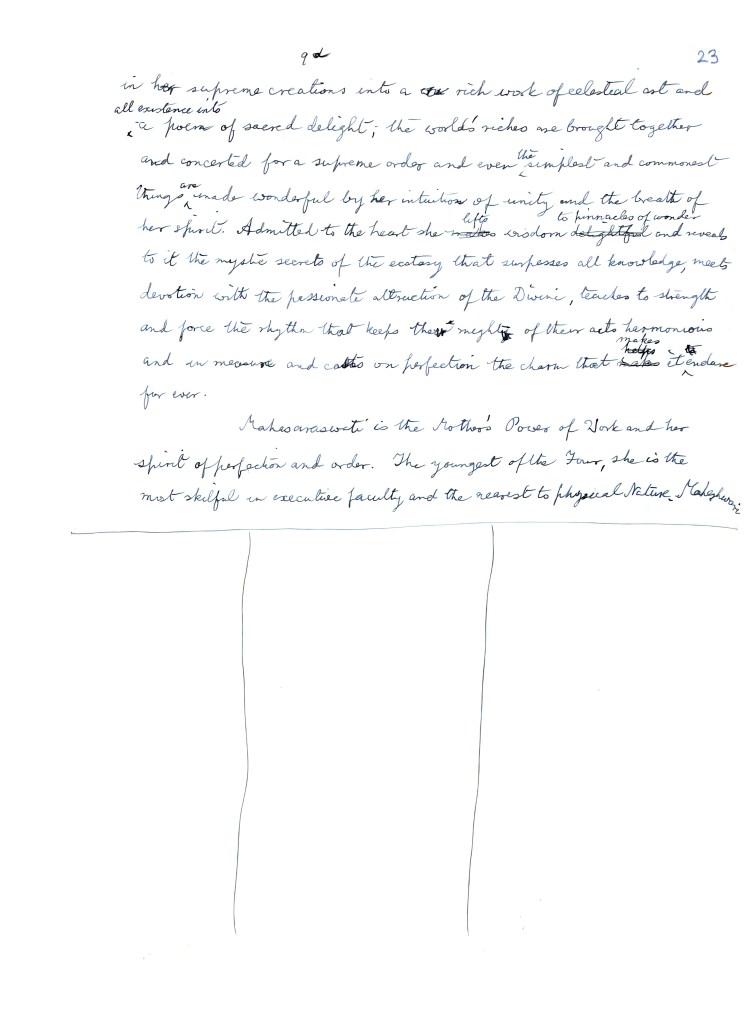 9d
23
in her supreme creations into a rich work of celestial art and
all existence into
a poem of sacred delight; the world's riches are brought together
and concerted for a supreme order and even the simplest and commonest
things are made wonderful by her intuition of unity and the breath of
lifts to pinnacles of wonder
her spirit. Admitted to the heart she makes wisdom delightful and reveals
to it the mystic secrets of the ecstasy that surpasses all knowledge, meets
devotion with the passionate attraction of the Divine, teaches to strength
and force the rhythm that keeps the might of their acts harmonious
makes
helps
and in measure and casts on perfection the charm that makes it endure
for ever.
Mahasaraswati is the Mother's Power of Work and her
spirit of perfection and order. The youngest of the Four, she is the
most skilful in executive faculty and the nearest to physical Nature. Maheshwari